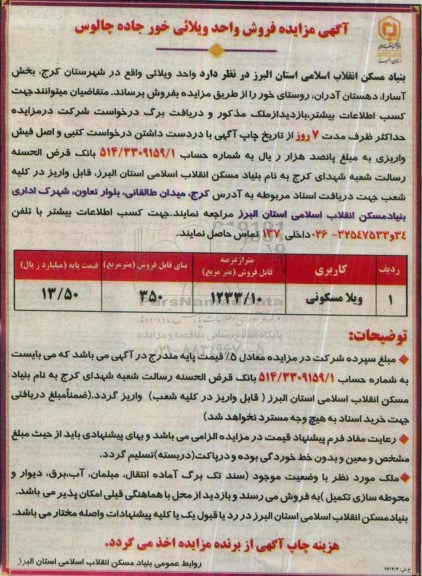 آگهی مزایده فروش واحد ویلائی خور جاده چالوس
بنیاد مسکن انقلاب اسلامی استان البرز در نظر دارد واحد ویلائی واقع در شهرستان کرج، بخش
آسارا، دهستان آدران، روستای خور را از طریق مزایده بفروش برساند. متقاضیان میتوانند جهت
کسب اطلاعات بیشتر،بازدیدازملک مذکور و دریافت برگ درخواست شرکت درمزایده
حداکثر ظرف مدت ۷ روز از تاریخ چاپ آگهی با دردست داشتن درخواست کتبی و اصل فیش
واریزی به مبلغ پانصد هزار ر یال به شماره حساب ۵۱۴/۳۳۰۹۱۵۹/۱ بانک قرض الحسنه
رسالت شعبه شهدای کرج به نام بنیاد مسکن انقلاب اسلامی استان البرز، قابل واریز در کلیه
شعب جهت دریافت اسناد مربوطه به آدرس کرج، میدان طالقانی، بلوار تعاون، شهرک اداری
بنیادمسکن انقلاب اسلامی استان البرز مراجعه نمایند.جهت کسب اطلاعات بیشتر با تلفن
۳۴و۳۲۵۴۷۵۳۳-۰۲۶داخلی ۱۳۷ تماس حاصل نمایند.
ردیف کاربری متراژعرصه قابل فروش (متر مربع) بنای قابل فروش (مترمربع) قیمت پایه (میلیارد ر یال)
۱ ویلا مسکونی ۱۲۳۳/۱۰ ۳۵۰ ۱۳/۵۰
توضیحات:
مبلغ سپرده شرکت در مزایده معادل ۵٪ قیمت پایه مندرج در آگهی می باشد که می بایست
به شماره حساب ۵۱۴/۳۳۰۹۱۵۹/۱ بانک قرض الحسنه رسالت شعبه شهدای کرج به نام بنیاد
مسکن انقلاب اسلامی استان البرز ( قابل واریز در کلیه شعب) واریز گردد.(ضمناًمبلغ دریافتی
جهت خرید اسناد به هیچ وجه مسترد نخواهد شد)
رعایت مفاد فرم پیشنهاد قیمت در مزایده الزامی می باشد و بهای پیشنهادی باید از حیث مبلغ
مشخص و معین و بدون خط خوردگی بوده و درپاکت(دربسته)تسلیم گردد.
ملک مورد نظر با وضعیت موجود (سند تک برگ آماده انتقال، مبلمان، آب،برق، دیوار و
محوطه سازی تکمیل )به فروش می رسند و بازدید از محل با هماهنگی قبلی امکان پذیر می باشد.
بنیادمسکن انقلاب اسلامی استان البرز در رد یا قبول یک یا کلیه پیشنهادات واصله مختار می باشد.
هزینه چاپ آگهی از برنده مزایده اخذ می گردد.
روابط عمومی بنیاد مسکن انقلاب اسلامی استان البرز